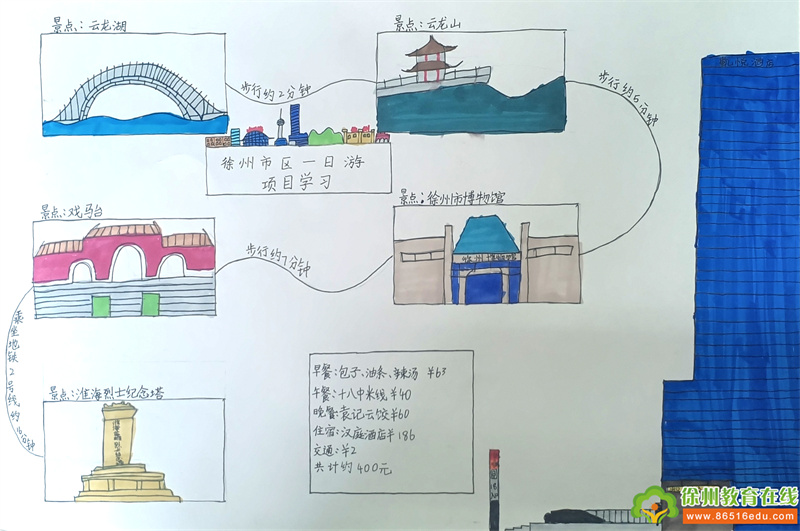 景点：云龙湖
景点：云龙山
步行约2分钟
步行约5分钟
徐州市区一日游
项目学习
景点：戏马台
景点：徐州市博物馆
徐州博物馆
步行约7分钟
乘坐地铁2号线约16分钟
景点：淮海烈士纪念塔
早餐：包子、油条、辣汤 ¥63
午餐：十八中米线¥40
晚餐：袁记云饺¥60
住宿：汉庭酒店¥186
交通：¥2
共计约400元
徐州教育在线
www.86516edu.com